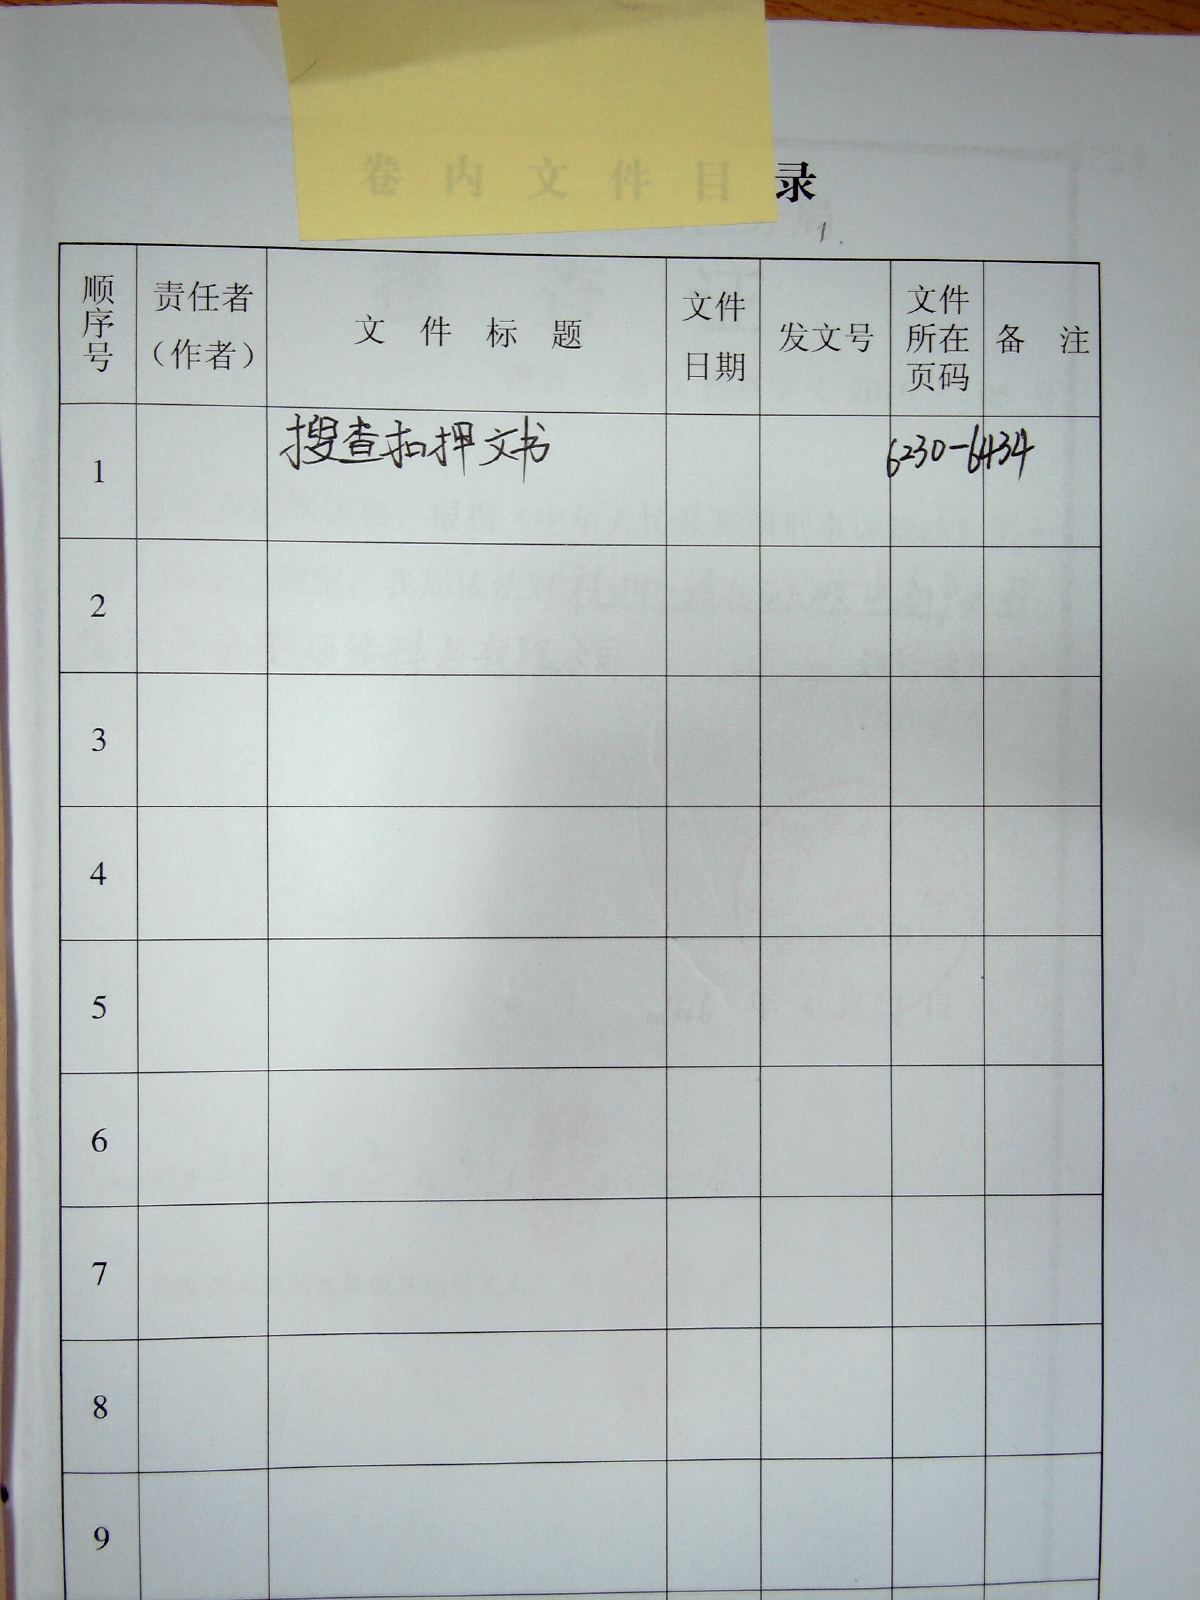 卷内文件目录
顺序号 责任者（作者） 文件标题 文件日期 发文号 文件所在页码 备注
1 搜查扣押文书 6230-6434
2
3
4
5
6
7
8
9